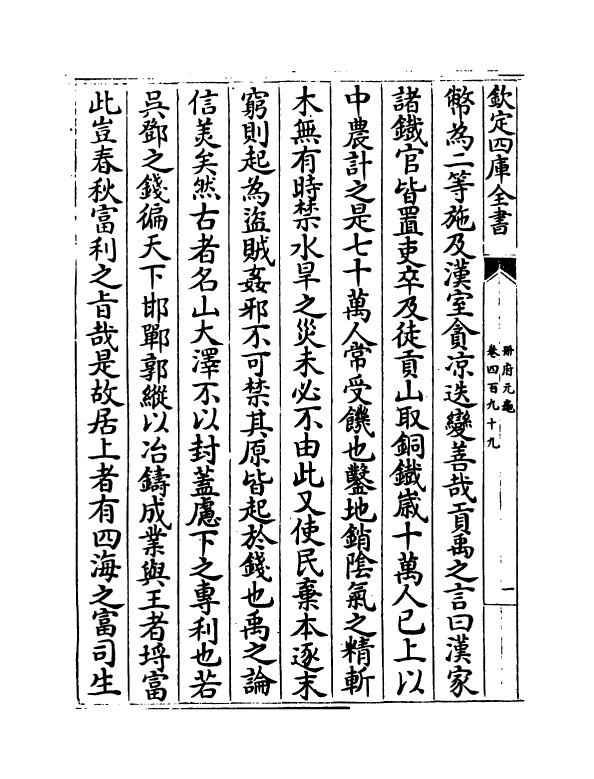 欽定四庫全書
冊府元龜
卷四百九十九
一
幣為二等施及漢室貪凉迭變善哉貢禹之言曰漢家
諸鐵官皆置吏卒及徒貢山取銅鐵歲十萬人已上以
中農計之是七十萬人常受饑也鑿地銷陰氣之精斬
木無有時禁水旱之災未必不由此又使民棄本逐末
窮則起為盜賊姦邪不可禁其原皆起於錢也禹之論
信美矣然古者名山大澤不以封蓋慮下之專利也若
呉鄧之錢徧天下邯鄲郭縱以冶鑄成業與王者埓富
此豈春秋富利之㫖哉是故居上者有四海之富司生